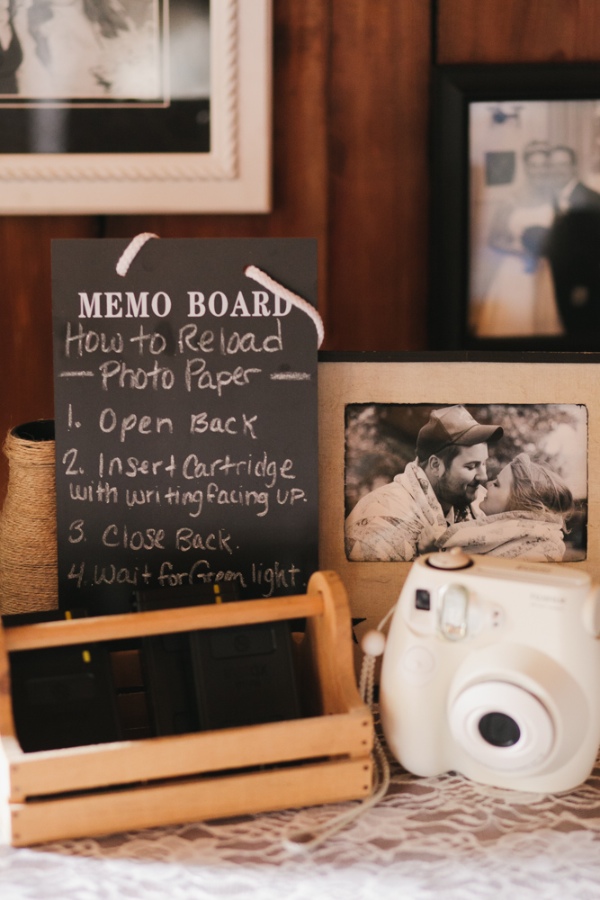 MEMO BOARD
How to Reload
— Photo Paper —
1. Open Back
2. Insert Cartridge
with writing facing up.
3. Close Back.
4. Wait for Green light.